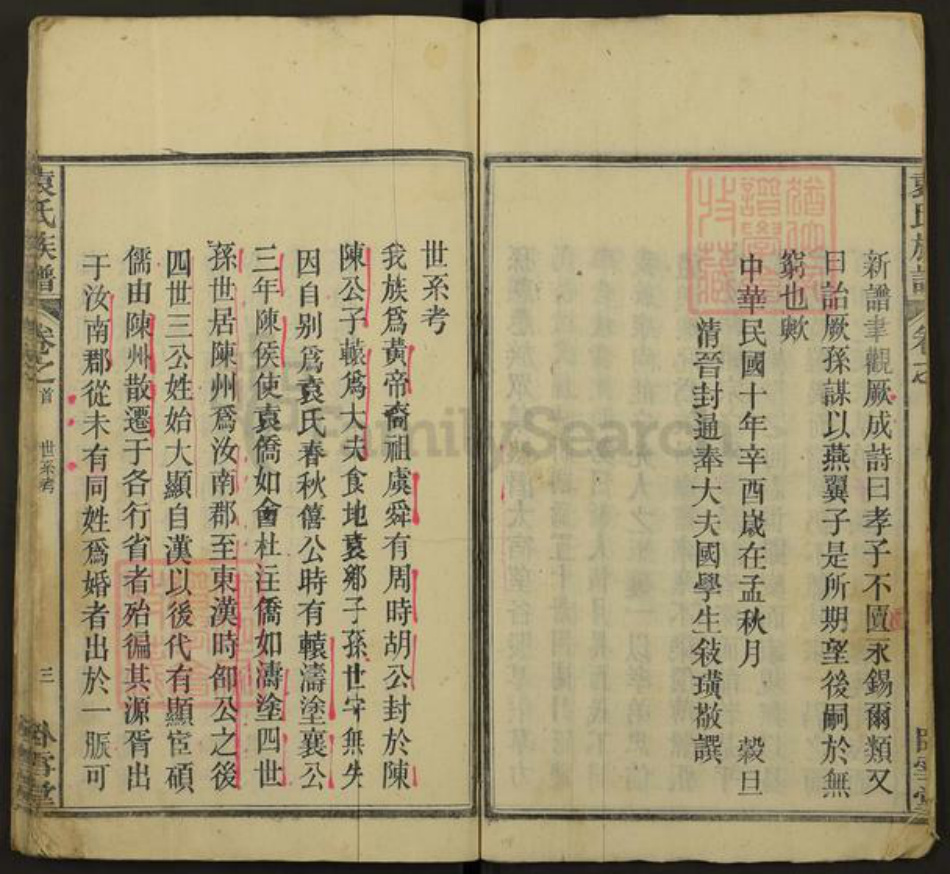 新譜聿觀厥成詩曰孝子不匱永錫爾類又
曰詒厥孫謀以燕翼子是所期望後嗣於無
窮也歟
中華民國十年辛酉歲在孟秋月 穀旦
清晉封通奉大夫國學生敍璜敬譔
袁氏族譜 卷之首 世系考 三 臥雪堂
世系考
我族為黃帝裔祖虞舜有周時胡公封於陳
陳公子轅為大夫食地袁鄉子孫世字無失
因自別為袁氏春秋僖公時有轅濤塗襄公
三年陳侯使袁僑如會杜注僑如濤塗四世
孫世居陳州為汝南郡至東漢時邵公之後
四世三公姓始大顯自漢以後代有顯宦碩
儒由陳州散遷于各行省者殆徧其源胥出
于汝南郡從未有同姓為婚者出於一脈可
FamilySearch